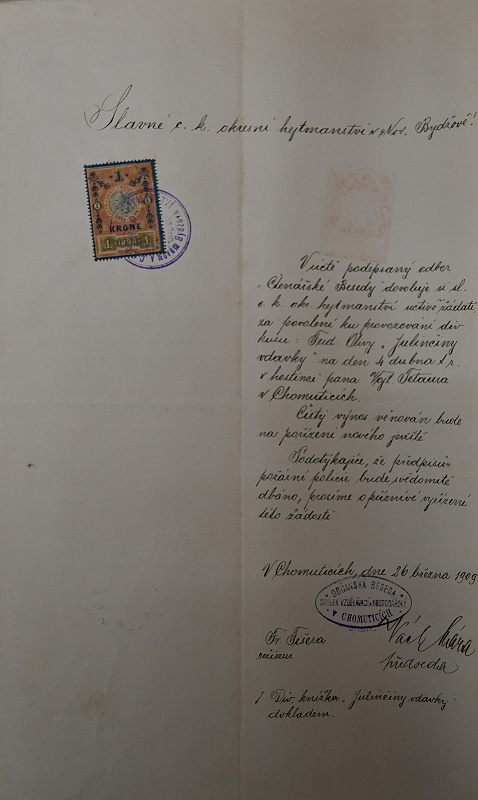 Slavné c. k. okresní hejtmanství v Nov. Bydžově!
1
KRONE
1 1898 1
Uctě podepsaný odbor
"Čtenářské Besedy" dovoluje si sl.
c. k. okr. hejtmanství uctivě žádati
za povolení ku provozování div.
kusu: Ferd. Olivy "Julinčiny
vdavky" na den 4 dubna t. r.
v hostinci pana Vojt. Tetaura
v Chomuticích.
Čistý výnos věnován bude
na pořízení nového jeviště
Podotýkajíce, že předpisův
požární policie bude svědomitě
dbáno, prosíme o příznivé vyřízení
této žádosti
V Chomuticích, dne 26 března 1909
OBČANSKÁ BESEDA
SPOLEK VZDĚLÁVACÍ A HOSPODÁŘSKÝ
V CHOMUTICÍCH
Fr. Fišera
režiseur
Václ. Mára
předseda
1 Div. knížka "Julinčiny vdavky"
dokladem.